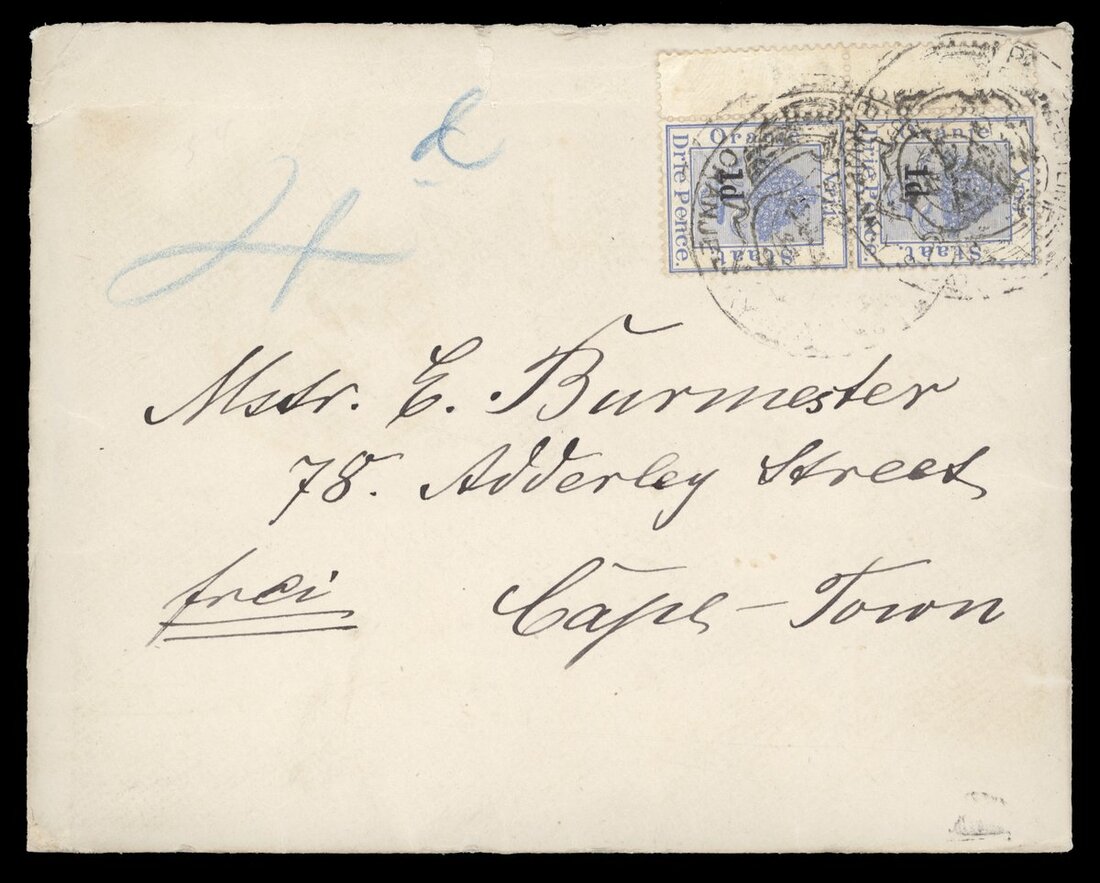 4d
Oranje Vrij Staat.
Drie Pence.
1d
Oranje Vrij Staat.
Drie Pence.
1d
ORANJE
Mstr. E. Burmester
78. Adderley Street
frei
Cape-Town